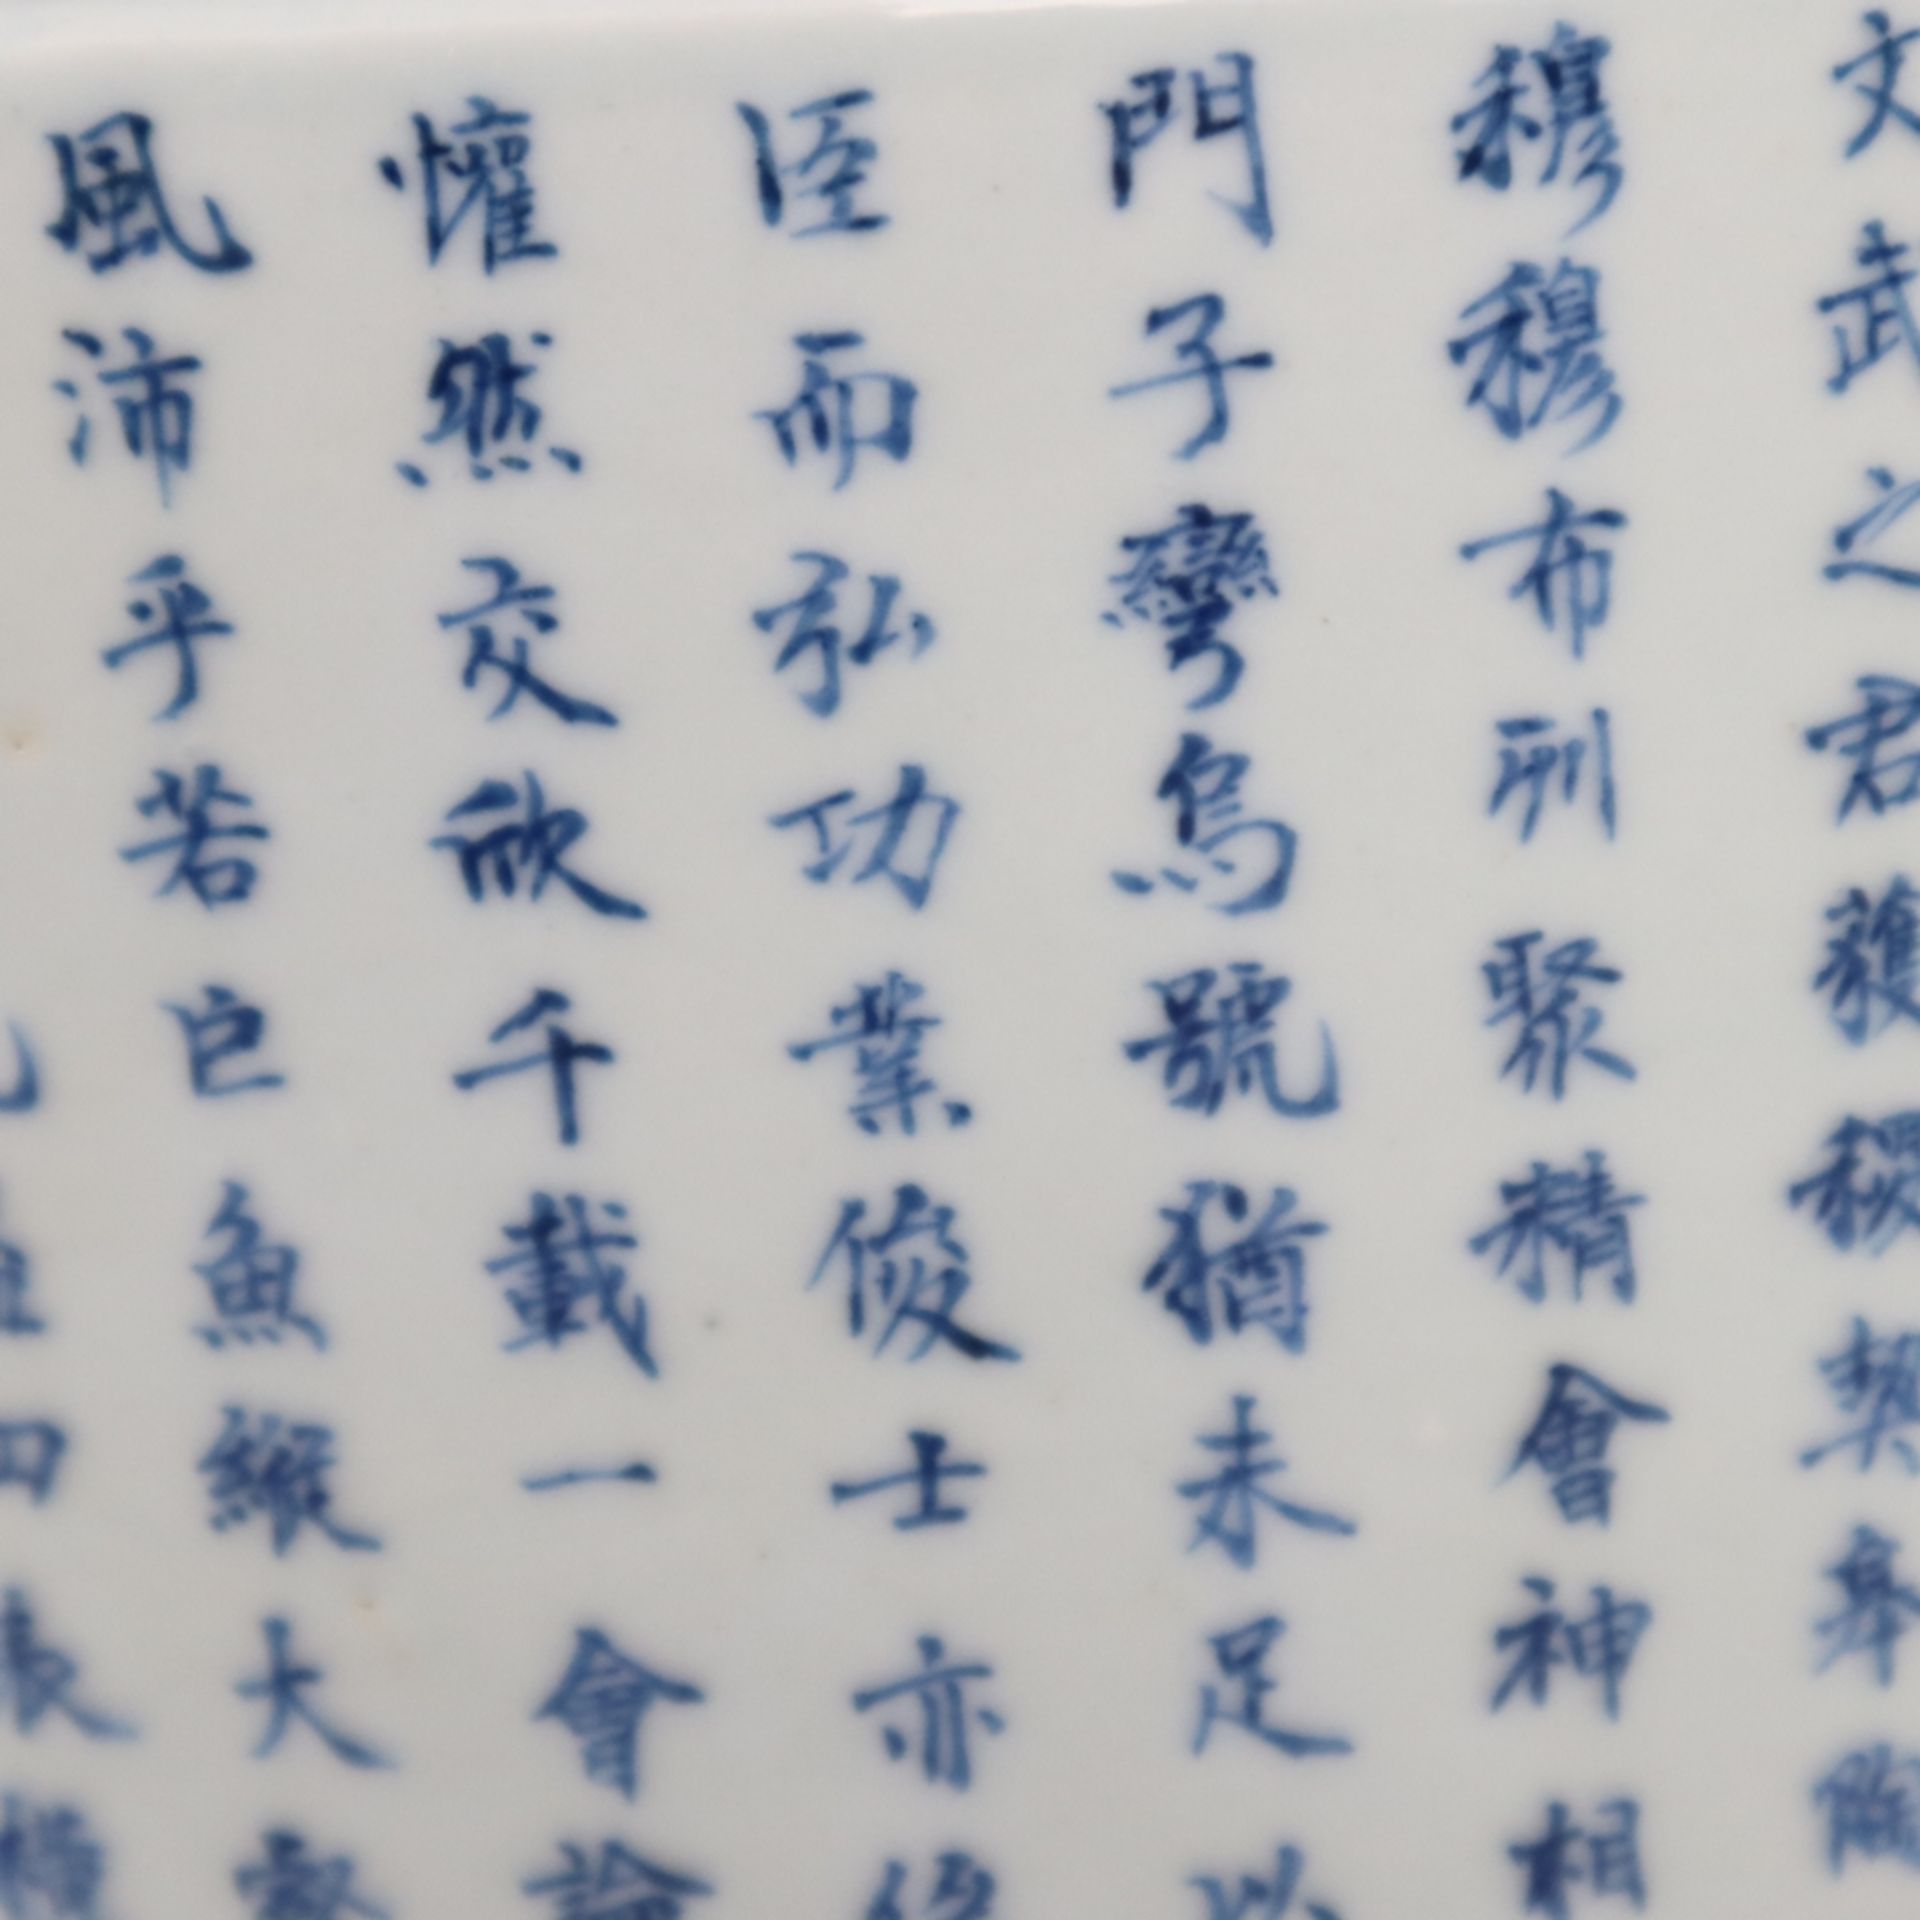 文武之君獲稷契皋陶
穆穆布列聚精會神相
門子彎烏號猶未足以
臣而弘功業俊士亦俟
懽然交欣千載一會論
風沛乎若巨魚縱大壑